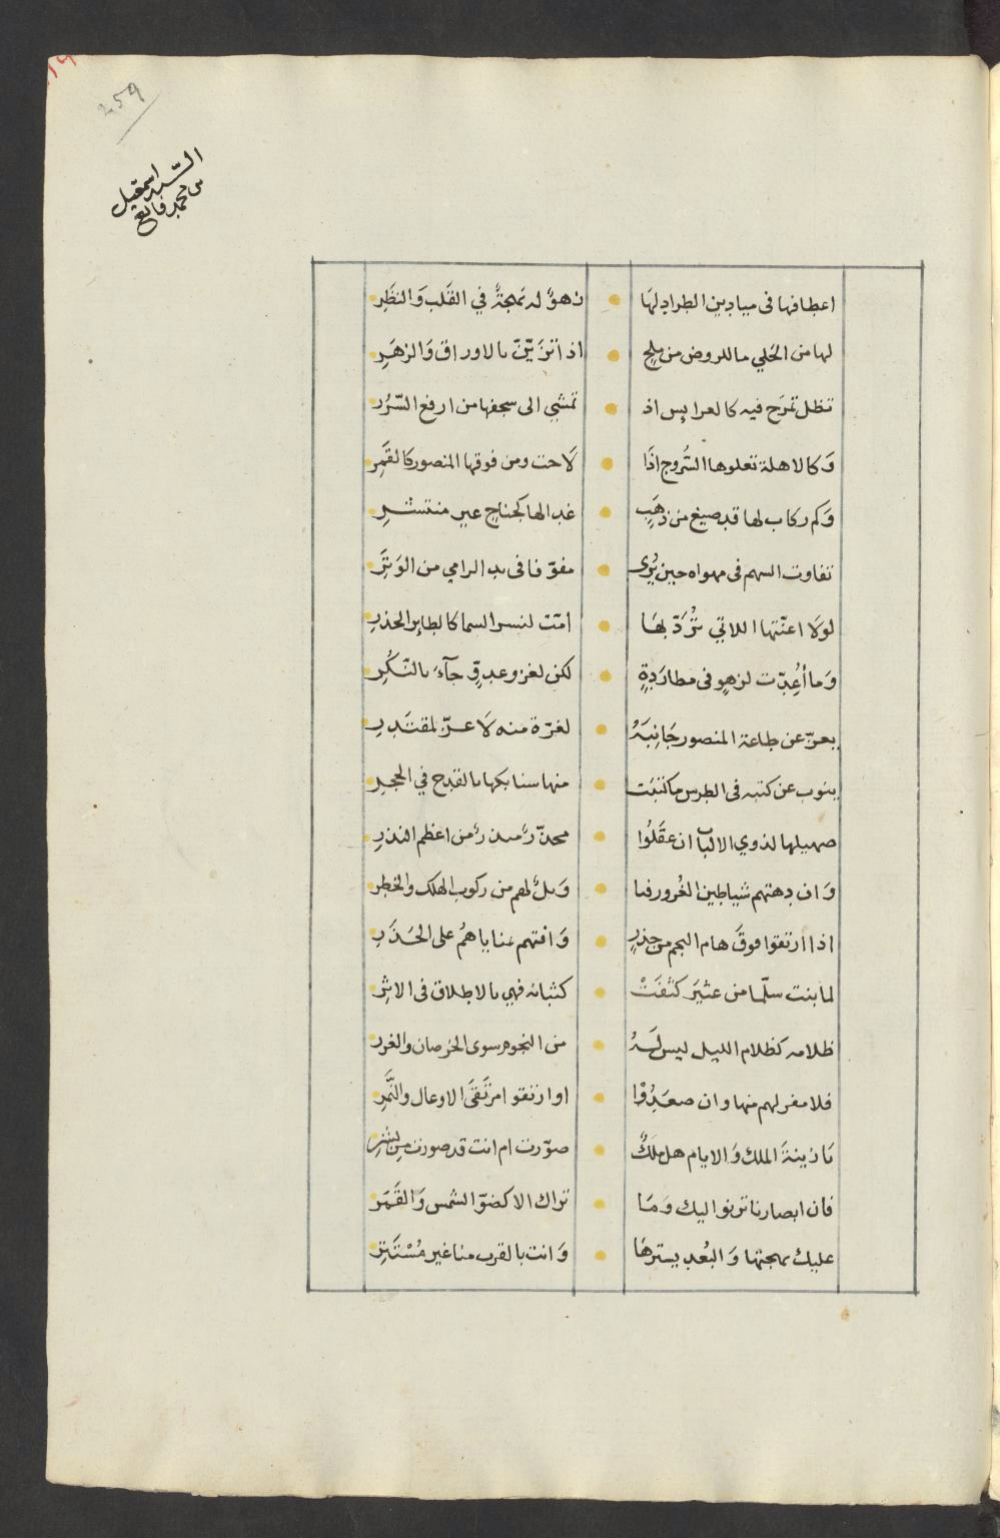 259
السيد اسمعيل
بن محمد فايع
اعطافها فى ميادين الطراد لها زهوٌ له بَهجةٌ في القَلب وَالنظَرِ
لها من الحَلي ما للروض من مِلحٍ اذا تزيّنّ بالاوراق وَالزهَرِ
تظل تمرَح فيه كالعرايس اذ تمشي الى سجفها من ارفع السّرُر
وَكالاهلة تعلوها السُروج اذَا لَاحت ومن فوقها المنصور كالقَمرِ
وَكم ركاب لها قد صيغ من ذهَبٍ غدا لها كجناحٍ غير منتشرِ
تفاوت السهم فى مهواه حين يُرى مفوّقا فى يد الرامي من الوَتَرِ
لولَا اعنّتها اللاتي تُرَدّ بهَا امّت لنسر السما كالطاير الحذرِ
وَما أُعِدّت لزهوٍ فى مطارَدةٍ لكن لغزو عدوٍّ جآءَ بالنّكُرِ
بعزّ عن طاعة المنصور جَانِبَهُ لغرّة منه لَا عزّ لمقتَدِرِ
ينوب عن كتبه فى الطرس ما كتبَت منها سنابكها بالقدح في الحجرِ
صهيلها لذوي الالباب ان عقَلُوا محذّرٌ منذرٌ من اعظم النذرِ
وَان دهتهم شياطين الغُرور فيا وَيلٌ لهم من ركوب الهلك والخطرِ
اذا ارتقوا فوقَ هام النجم من حذرٍ وَافتهم مناياهمُ على الحَذَرِ
لما بنت سلّما من عثيَر كثُفَتْ كثبانه فهي بالاطلاق فى الاثرِ
ظلامه كظلام الليل ليس لَهُ من النجوم سوى الخرصان والغرر
فلا مفر لهم منها وان صعَدُوا او ارتقوا مرتَقَى الاوعال والنَّمرِ
يَا زينةَ الملك وَالايام هل مَلَكٌ صوّرت ام انت قد صورت من بشرِ
فان ابصارنا ترنو اليك وَمَا تراك الا كضوّ الشمس وَالقَمَرِ
عليك بهجتها وَالبُعد يسترهَا وَانت بالقرب منا غير مُسْتَترِ